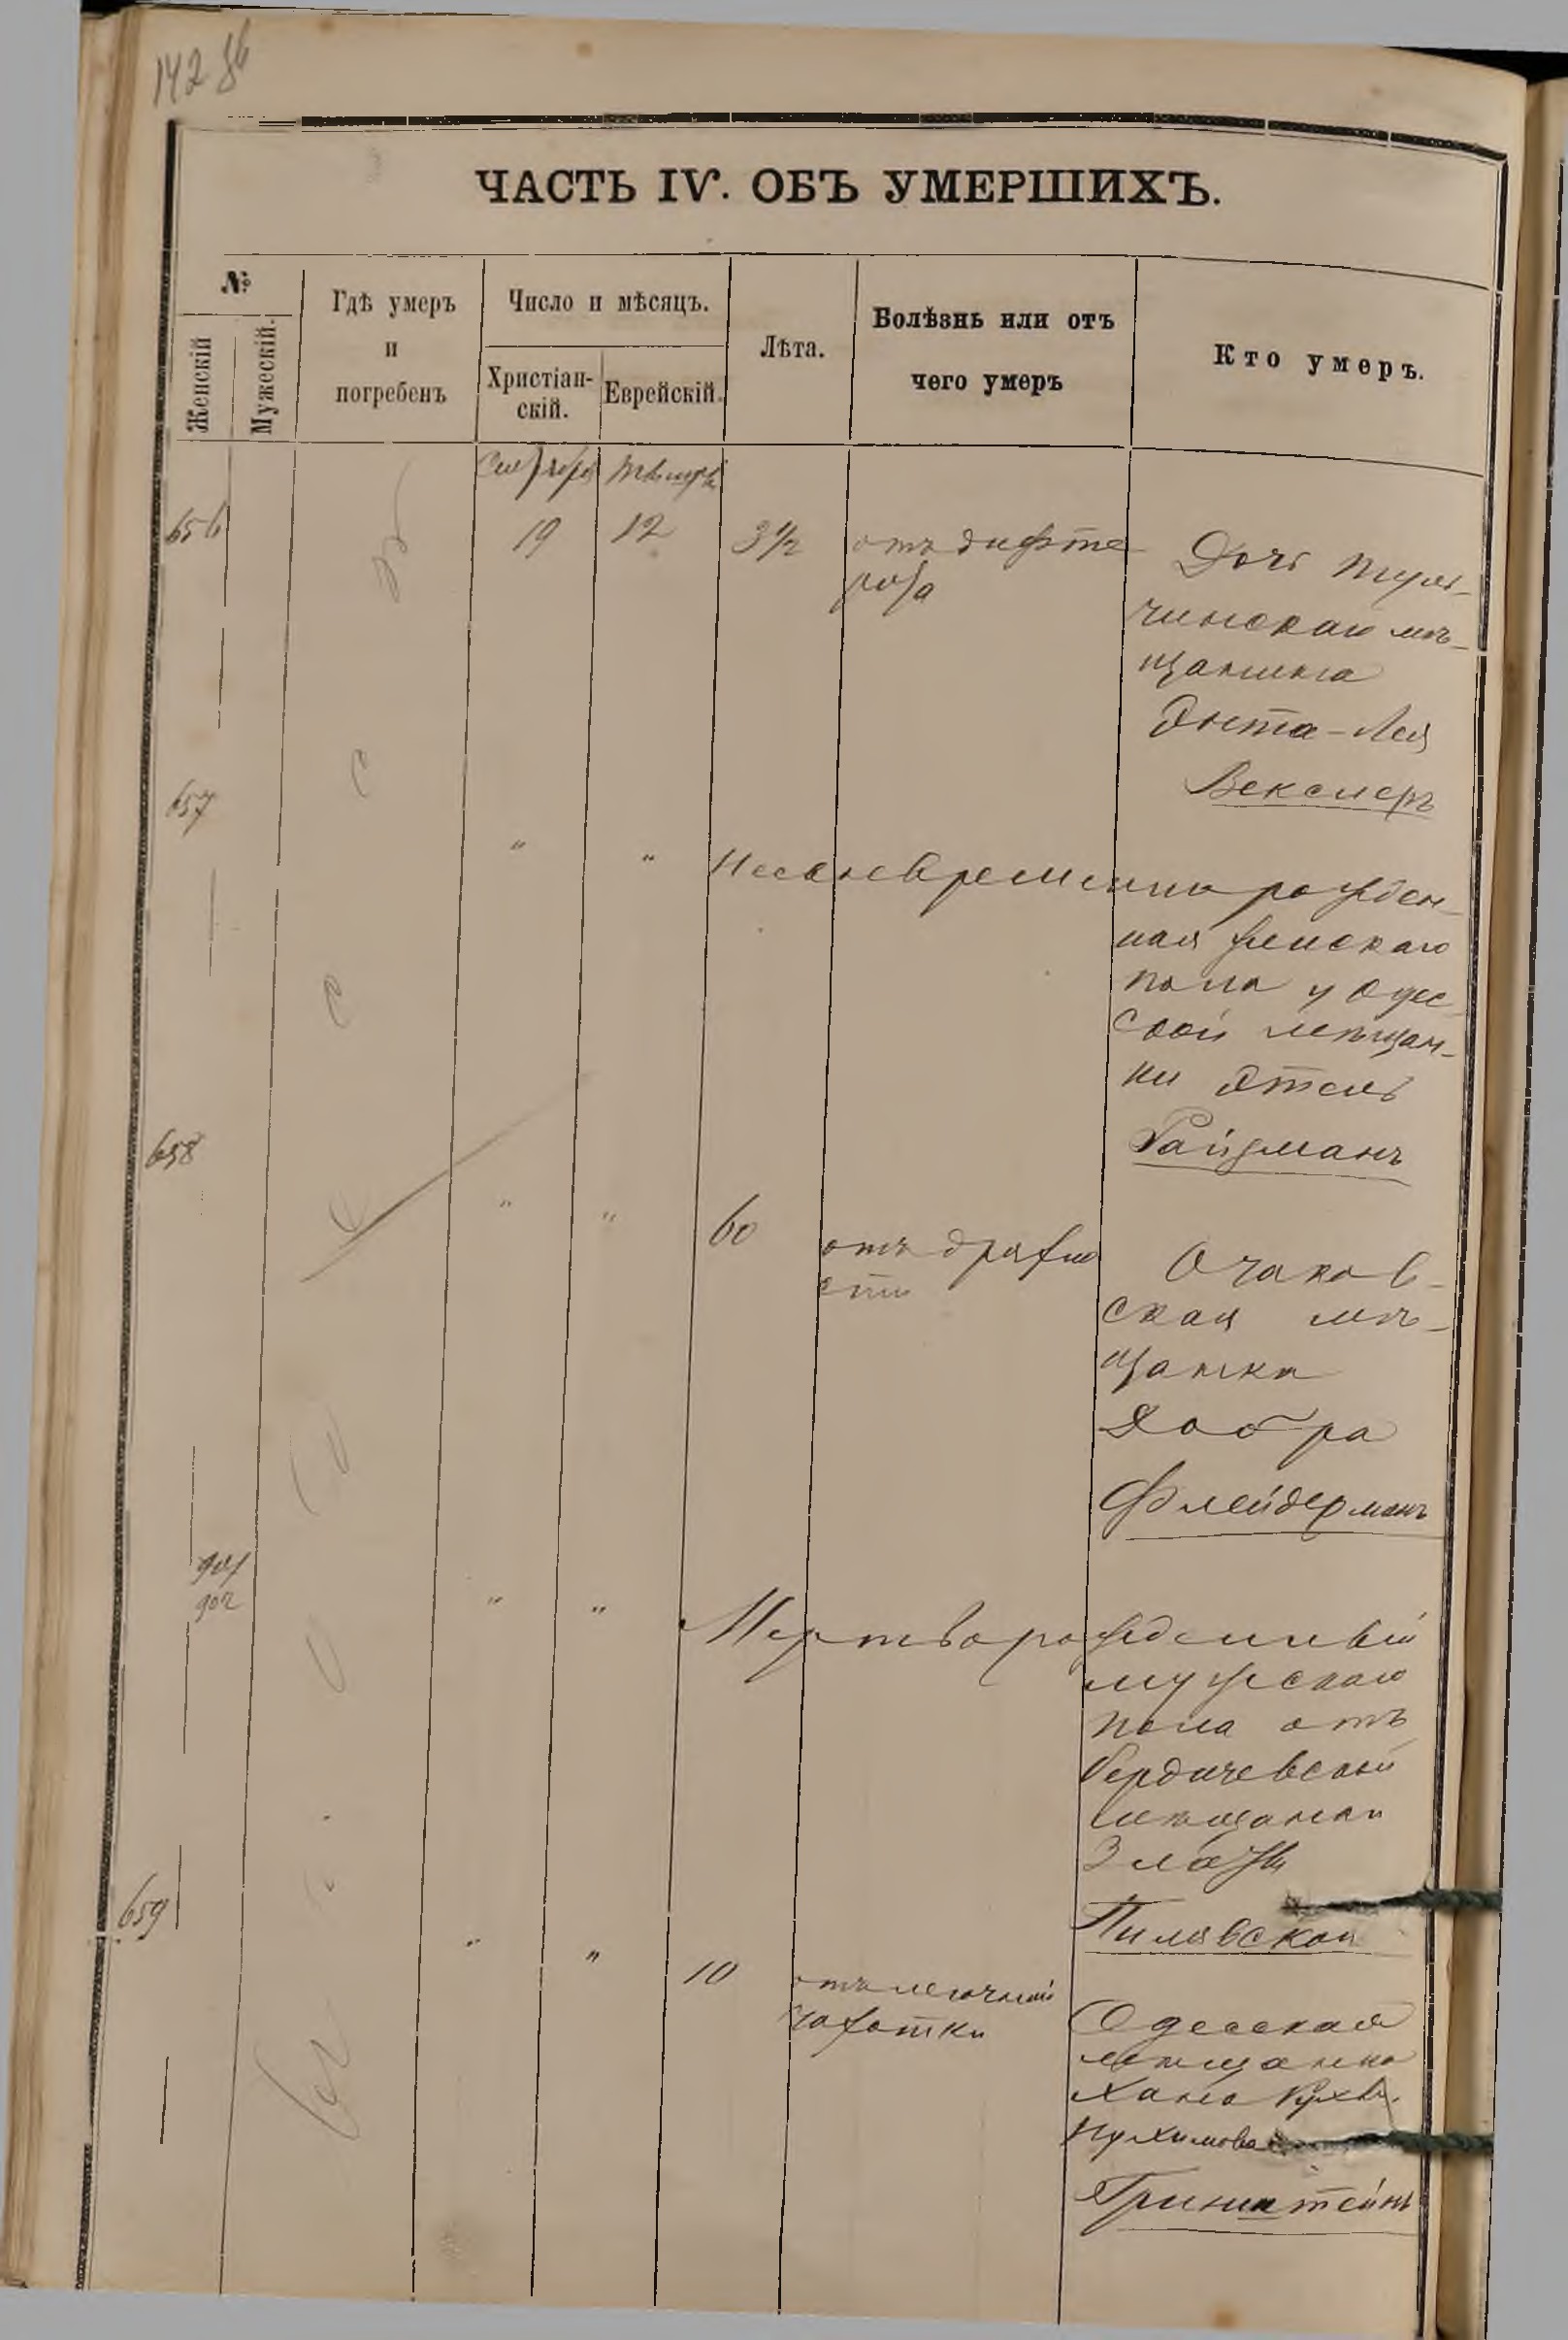 142 об
ЧАСТЬ IV. ОБЪ УМЕРШИХЪ.
№
Женскій
Мужескій.
Гдѣ умеръ
и
погребенъ
Число и мѣсяцъ.
Христіан-
скій.
Еврейскій.
Лѣта.
Болѣзнь или отъ
чего умеръ
Кто умеръ.
656
19
12
3½
отъ дифте-
рита
Дочь Туль-
чинскаго мѣ-
щанина
Энта-Лея
Векслеръ
657
"
"
Несвоевременно рожден-
ная женскаго
пола у Одес-
ской мѣщан-
ки Этель
Райзманъ
658
"
"
60
отъ дряхло
сти
Очаков-
ская мѣ-
щанка
Добра
Флейдерманъ
901
902
"
"
Мертворожденный
мужскаго
пола отъ
Бердичевской
мѣщанки
Златы
Пилявской
659
"
"
10
отъ легочной
чахотки
Одесская
мѣщанка
Хана
Нухимова
Гринштейнъ